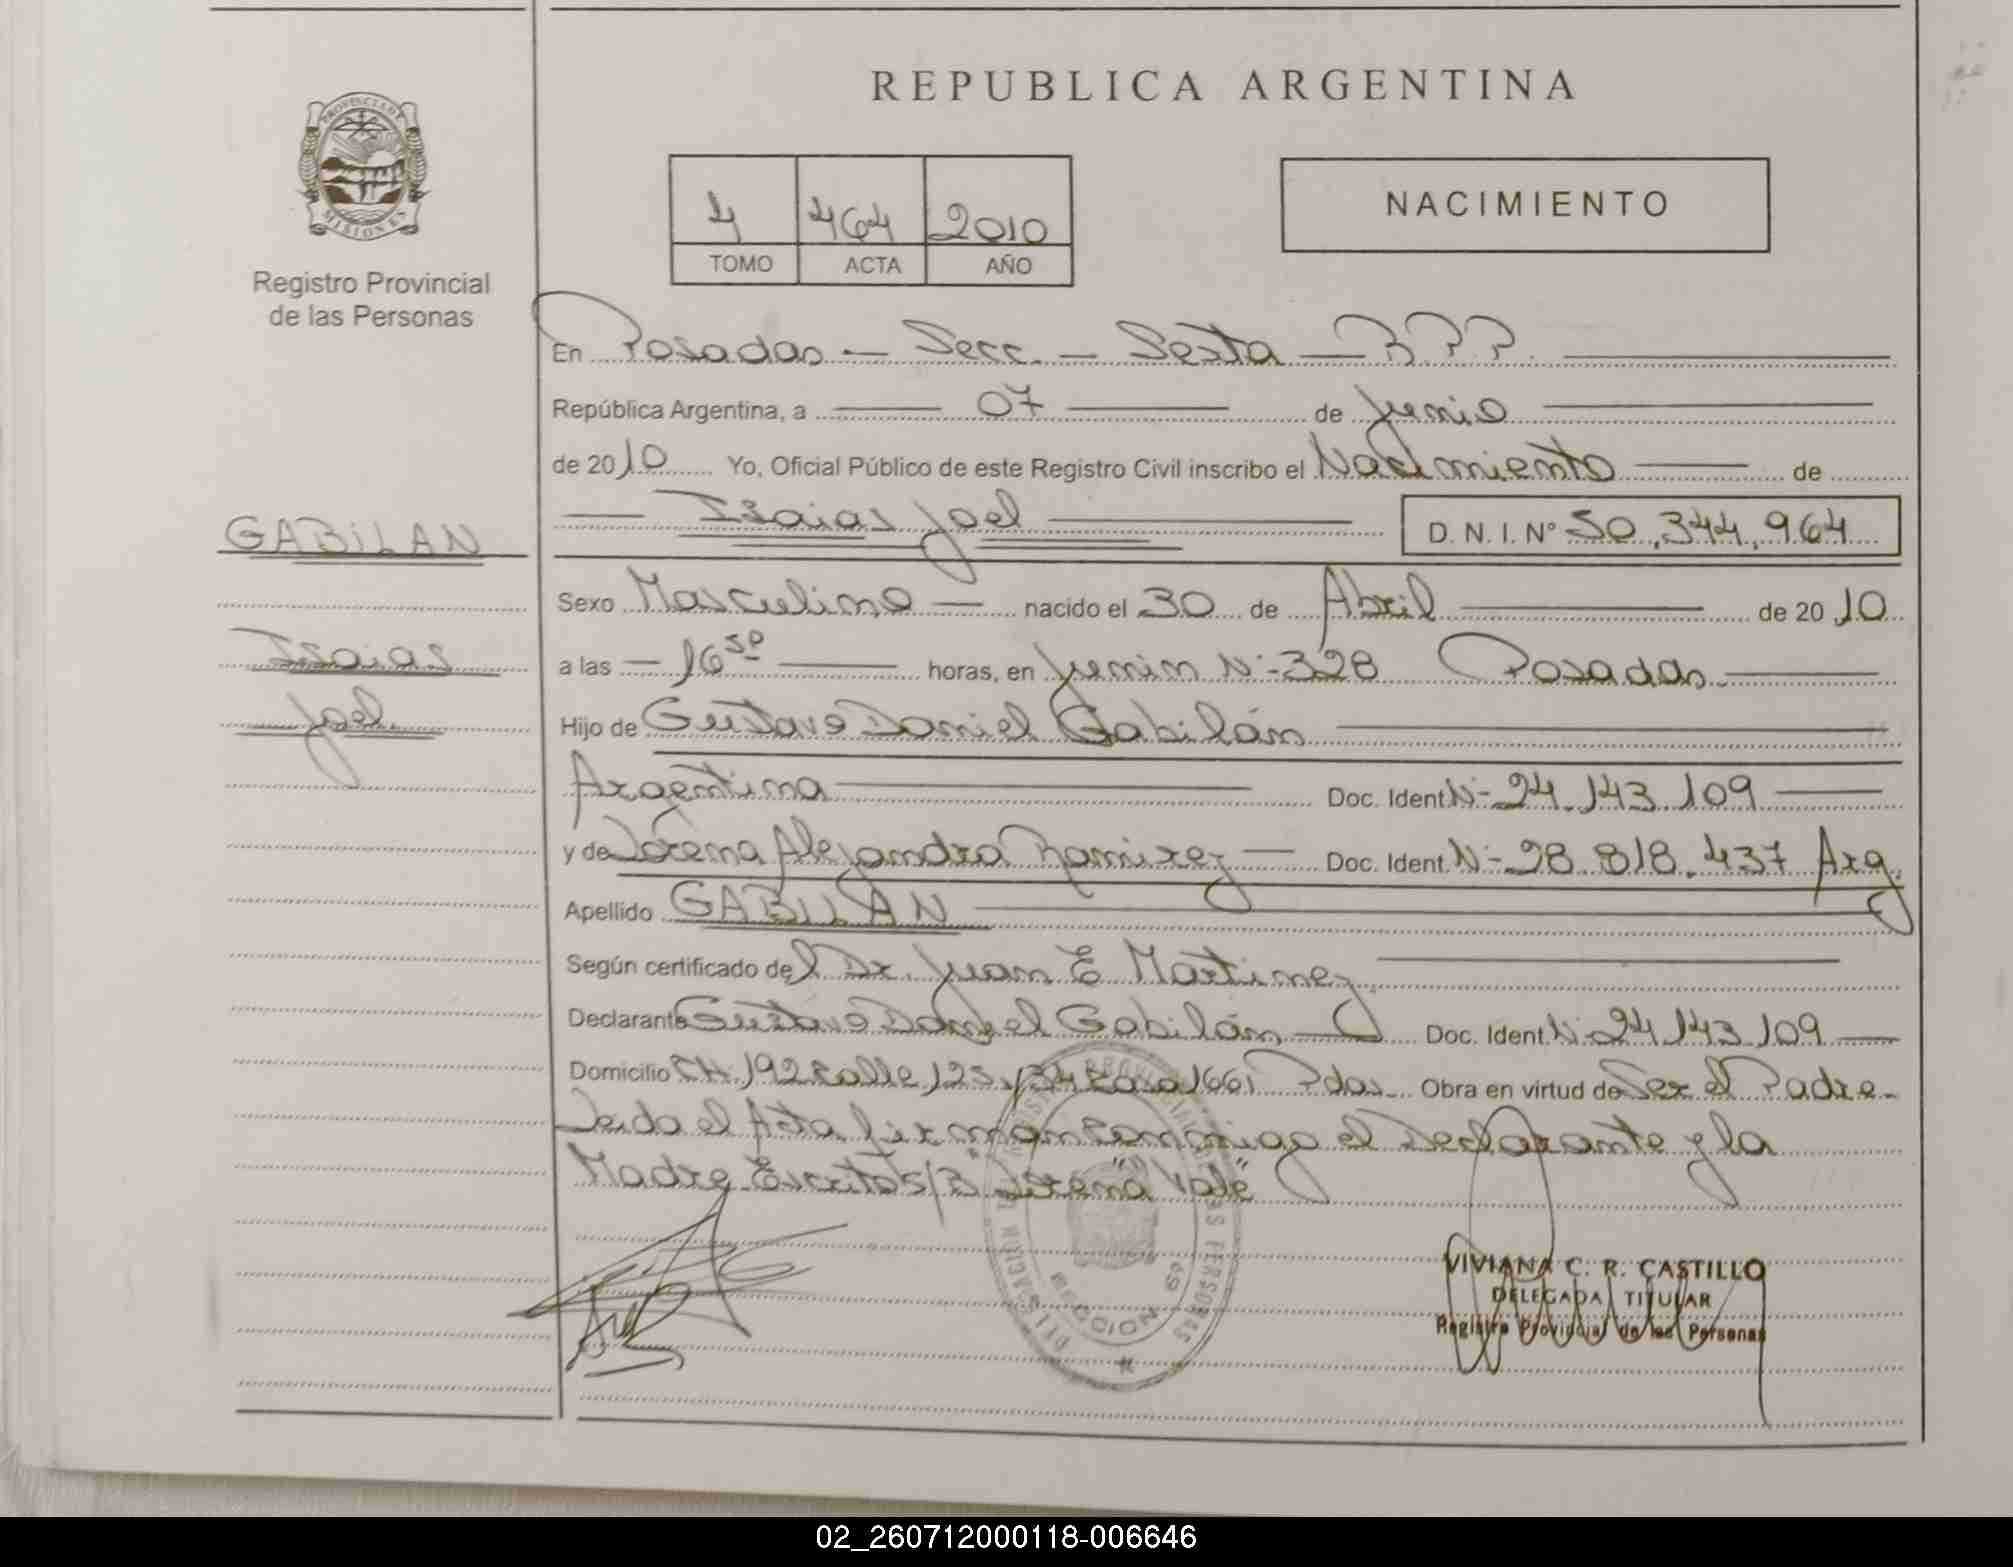 REPUBLICA ARGENTINA
PROVINCIA DE
MISIONES
Registro Provincial
de las Personas
4 464 2010
TOMO ACTA AÑO
NACIMIENTO
En Posadas — Secc. — Sexta — R P P.
República Argentina, a — 07 — de Junio
de 2010 Yo, Oficial Público de este Registro Civil inscribo el Nacimiento — de
— Isaias Joel — D. N. I. Nº 50.344.964
GABILAN
Isaias
Joel.
Sexo Masculino — nacido el 30 de Abril — de 2010
a las — 16 50 — horas, en Junin Nº 328 Posadas.
Hijo de Gustavo Daniel Gabilán
Argentina — Doc. Ident. Nº 24.143.109 —
y de Lorena Alejandra Ramirez — Doc. Ident. Nº 28.818.437 Arg.
Apellido GABILAN
Según certificado del Dr. Juan E Martinez.
Declarante Gustavo Daniel Gabilán — Doc. Ident. Nº 24.143.109 —
Domicilio CH. 192 calle 125 y 54 casa 1661 Pdas. Obra en virtud de Ser el Padre.
Leido el Acta firman conmigo el Declarante y la
Madre Escrito s/ "Lorena" Vale
SECCION 6º
VIVIANA C. R. CASTILLO
DELEGADA TITULAR
Registro Provincial de las Personas
02_260712000118-006646